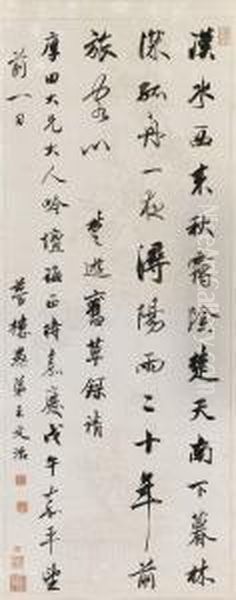 漢水西来秋靄陰楚天南下暮林
深孤舟一夜潯陽雨二十年前
旅客心 楚遊舊草録請
田大兄大人吟壇誨正時嘉慶戊午嘉平望
前一日 夢樓愚弟王文治